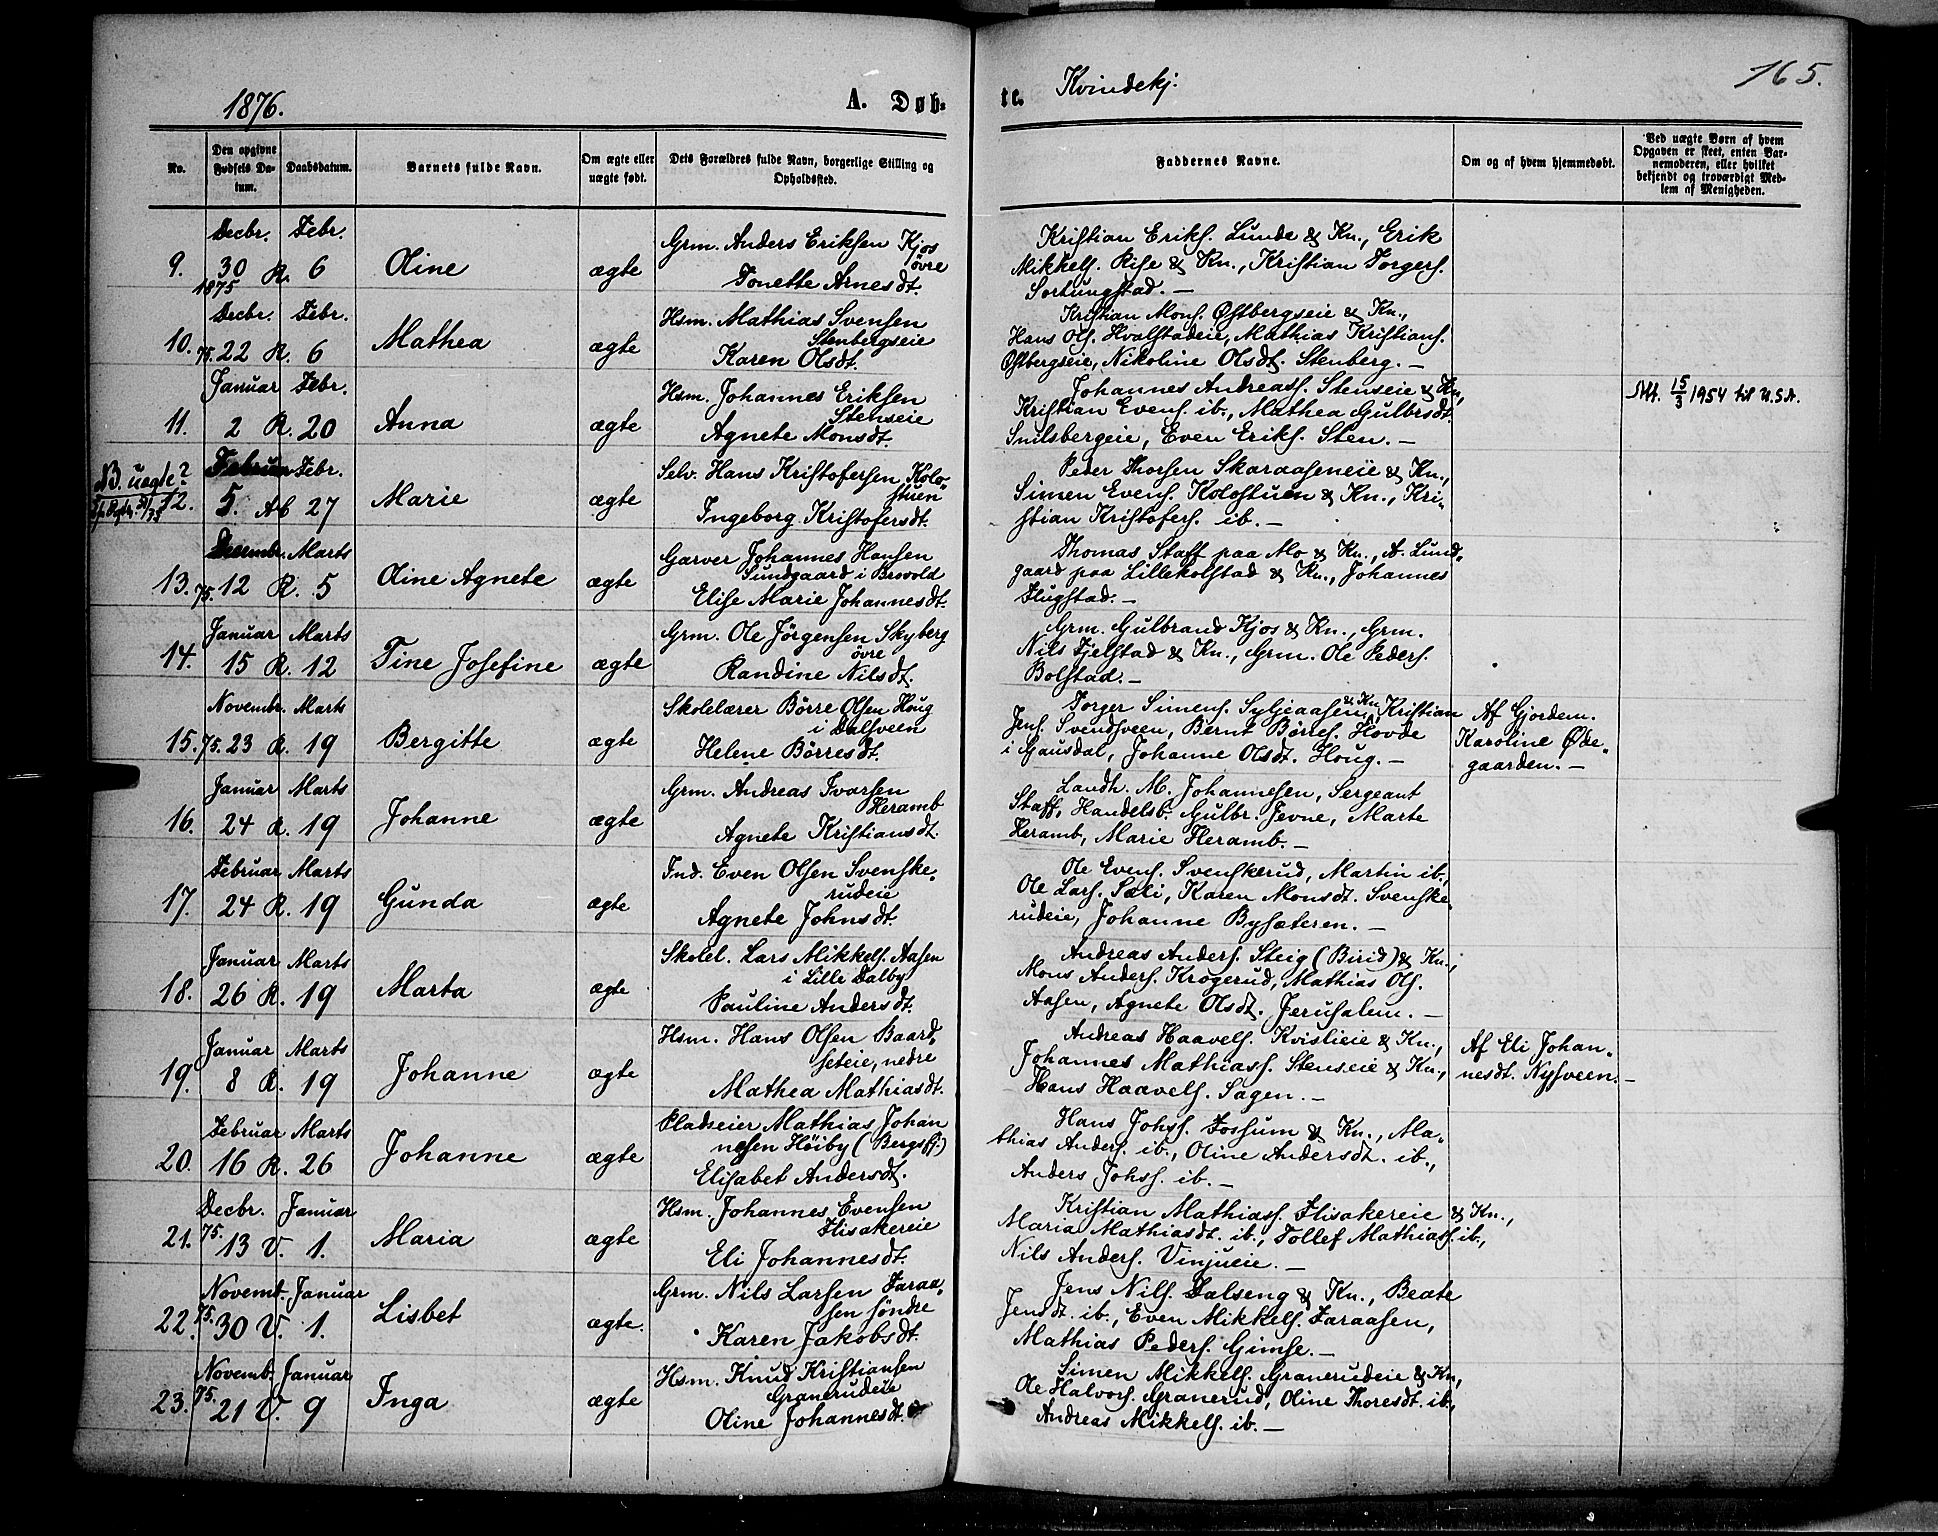 1876.
A. Døb-
te. Kvindekj.
165.
No.
Den opgivne Fødsels Da-tum.
Daabsdatum.
Barnets fulde Navn.
Om ægte eller uægte født.
Dets Forældres fulde Navn, borgerlige Stilling og Opholdssted.
Faddernes Navne.
Om og af hvem hjemmedøbt.
Ved uægte Børn af hvem Opgaven er skeet, enten Bar-nemoderen, eller hvilket bekjendt og troværdigt Med-lem af Menigheden.
9. Decbr. 30 1875 R. Febr. 6 Oline ægte
Grm. Anders Eriksen Kjos
øvre
Tonette Arnesdt.
Kristian Eriks. Lunde & Kn., Erik
Mikkels. Rise & Kn., Kristian Torgers.
Sortungstad. —
10. Decbr. 75. 22 R. Febr. 6 Mathea ægte
Hsm. Mathias Svensen
Stenbergseie
Karen Olsdt.
Kristian Mons. Østbergseie & Kn.,
Hans Ols. Hvalstadeie, Mathias Kristians.
Østbergseie, Nikoline Olsdt. Stenberg. —
11. Januar 2 R. Febr. 20 Anna ægte
Hsm. Johannes Eriksen
Stenseie
Agnete Monsdt.
Johannes Andreass. Stenseie & Kn.,
Kristian Evens. ib., Mathea Gulbrsdt.
Snilsbergeie, Even Eriks. Sten. —
Att. 15/3 1954 til U.S.A.
NB. uægte?
12. Februar 5. Ab Febr. 27 Marie ægte
Selv. Hans Kristofersen Kolo-
stuen
Ingeborg Kristofersdt.
Peder Thorsen Skaraaseneie & Kn.,
Simen Evens. Kolostuen & Kn., Kri-
stian Kristofers. ib. —
13. Decembr. 75. 12 R. Marts 5 Oline Agnete ægte
Garver Johannes Hansen
Lundgaard i Brovold
Elise Marie Johannesdt.
Thomas Staff paa Mo & Kn., A. Lund-
gaard paa Lillekolstad & Kn., Johannes
Flugstad. —
14. Januar 15 R. Marts 12 Tine Josefine ægte
Grm. Ole Jörgensen Skyberg
øvre
Randine Nilsdt.
Grm. Gulbrand Kjos & Kn., Grm.
Nils Fjelstad & Kn., Grm. Ole Peders.
Bolstad. —
15. Novembr. 75. 23 R. Marts 19 Bergitte ægte
Skolelærer Börre Olsen Houg
i Dalsveen
Helene Börresdt.
Torger Simens. Syljeaasen & Kn., Kristian
Jens. Svendsveen, Bernt Børres. Hovde
i Gausdal, Johanne Olsdt. Houg. —
Af Gjordem.
Karoline Øde-
gaarden. —
16. Januar 24 R. Marts 19 Johanne ægte
Grm. Andreas Ivarsen
Heramb
Agnete Kristiansdt.
Landh. M. Johannesen, Sergeant
Staff, Handelsb. Gulbr. Jevne, Marte
Heramb, Marie Heramb. —
17. Februar 24 R. Marts 19 Gunda ægte
Ind. Even Olsen Svenske-
rudeie
Agnete Johnsdt.
Ole Evens. Svenskerud, Martin ib.,
Ole Lars. Sæli, Karen Monsdt. Svenske-
rudeie, Johanne Bysæteren. —
18. Januar 26 R. Marts 19 Marta ægte
Skolel. Lars Mikkels. Aasen
i Lille Dalby
Pauline Andersdt.
Andreas Anders. Steig (Birid) & Kn.,
Mons Anders. Krogerud, Mathias Ols.
Aasen, Agnete Olsdt. Jerusalem. —
19. Januar 8 R. Marts 19 Johanne ægte
Hsm. Hans Olsen Baard-
seteie, nedre
Mathea Mathiasdt.
Andreas Haavels. Kvislieie & Kn.,
Johannes Mathiass. Stenseie & Kn.,
Hans Haavels. Sagen. —
Af Eli Johan-
nesdt. Nysveen. —
20. Februar 16 R. Marts 26 Johanne ægte
Pladseier Mathias Johan
nesen Höiby (Bergst.)
Elisabet Andersdt.
Hans Johss. Fossum & Kn., Ma-
thias Anders. ib., Oline Andersdt. ib.,
Anders Johss. ib. —
21. Decbr. 75. 13 V. Januar 1. Maria ægte
Hsm. Johannes Evensen
Flisakereie
Eli Johannesdt.
Kristian Mathiass. Flisakereie & Kn.,
Maria Mathiasdt. ib., Tollef Mathiass. ib.,
Nils Anders. Vinjueie. —
22. Novemb. 75. 30 V. Januar 1. Lisbet ægte.
Grm. Nils Larsen Faraa-
sen söndre
Karen Jakobsdt.
Jens Nils. Dalseng & Kn., Beate
Jensdt. ib., Even Mikkels. Faraasen,
Mathias Peders. Gimse. —
23. Novemb. 75. 21 V. Januar 9 Inga ægte
Hsm. Knud Kristiansen
Granerudeie
Oline Johannesdt.
Simen Mikkels. Granerudeie & Kn.,
Ole Halvors. Granerud, Oline Thoresdt. ib.,
Andreas Mikkels. ib. —